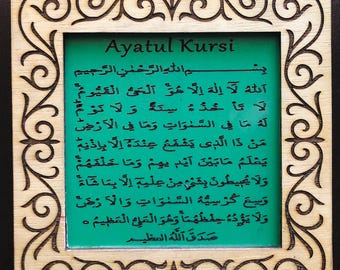 Ayatul Kursi
بِسْمِ اللهِ الرَّحْمٰنِ الرَّحِيْمِ
اَللهُ لَآ اِلٰهَ اِلَّا هُوَ اَلْحَيُّ الْقَيُّوْمُ
لَا تَأْخُذُهُ سِنَةٌ وَّ لَا نَوْمٌ
لَهُ مَا فِي السَّمٰوَاتِ وَمَا فِي الْاَرْضِ
مَنْ ذَا الَّذِي يَشْفَعُ عِنْدَهُ اِلَّا بِاِذْنِهِ
يَعْلَمُ مَا بَيْنَ اَيْدِيهِمْ وَمَا خَلْفَهُمْ
وَلَا يُحِيطُونَ بِشَيْءٍ مِنْ عِلْمِهِ اِلَّا بِمَا شَاءَ
وَسِعَ كُرْسِيُّهُ السَّمٰوَاتِ وَالْاَرْضَ وَلَا
وَلَا يَؤُدُهُ حِفْظُهُمَا وَهُوَ الْعَلِيُّ الْعَظِيْمُ
صَدَقَ اللهُ العظيم